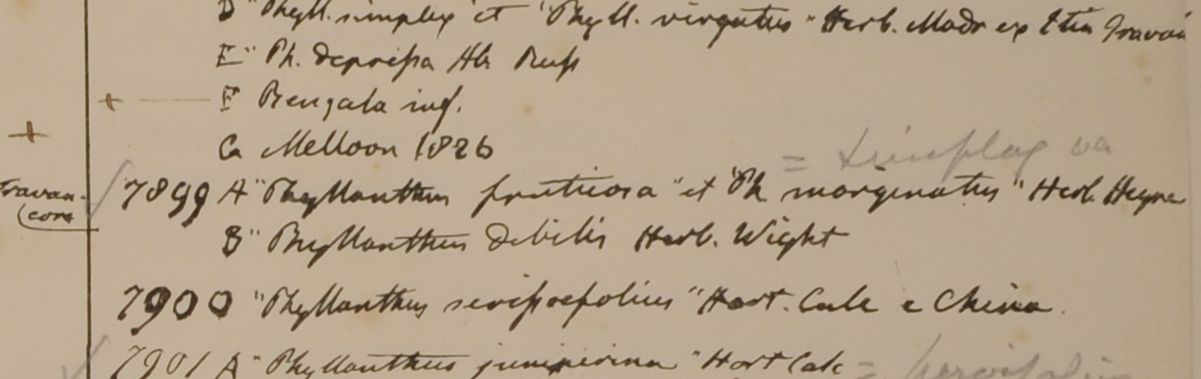 D "Phyll. simplex et "Phyll. virgatus" Herb. Madr ex Itin Travan
E" Ph. depressa Hb. Russ
F Bengala inf.
G Melloon 1826
= Simplex va
Travancora 7899 A "Phyllanthus fruticosa" et "Ph marginatus" Herb. Heyne
B" Phyllanthus debilis Herb. Wight
7900 "Phyllanthus serissaefolius" Hort. Calc e China.
7901 A "Phyllanthus juniperina" Hort Calc =